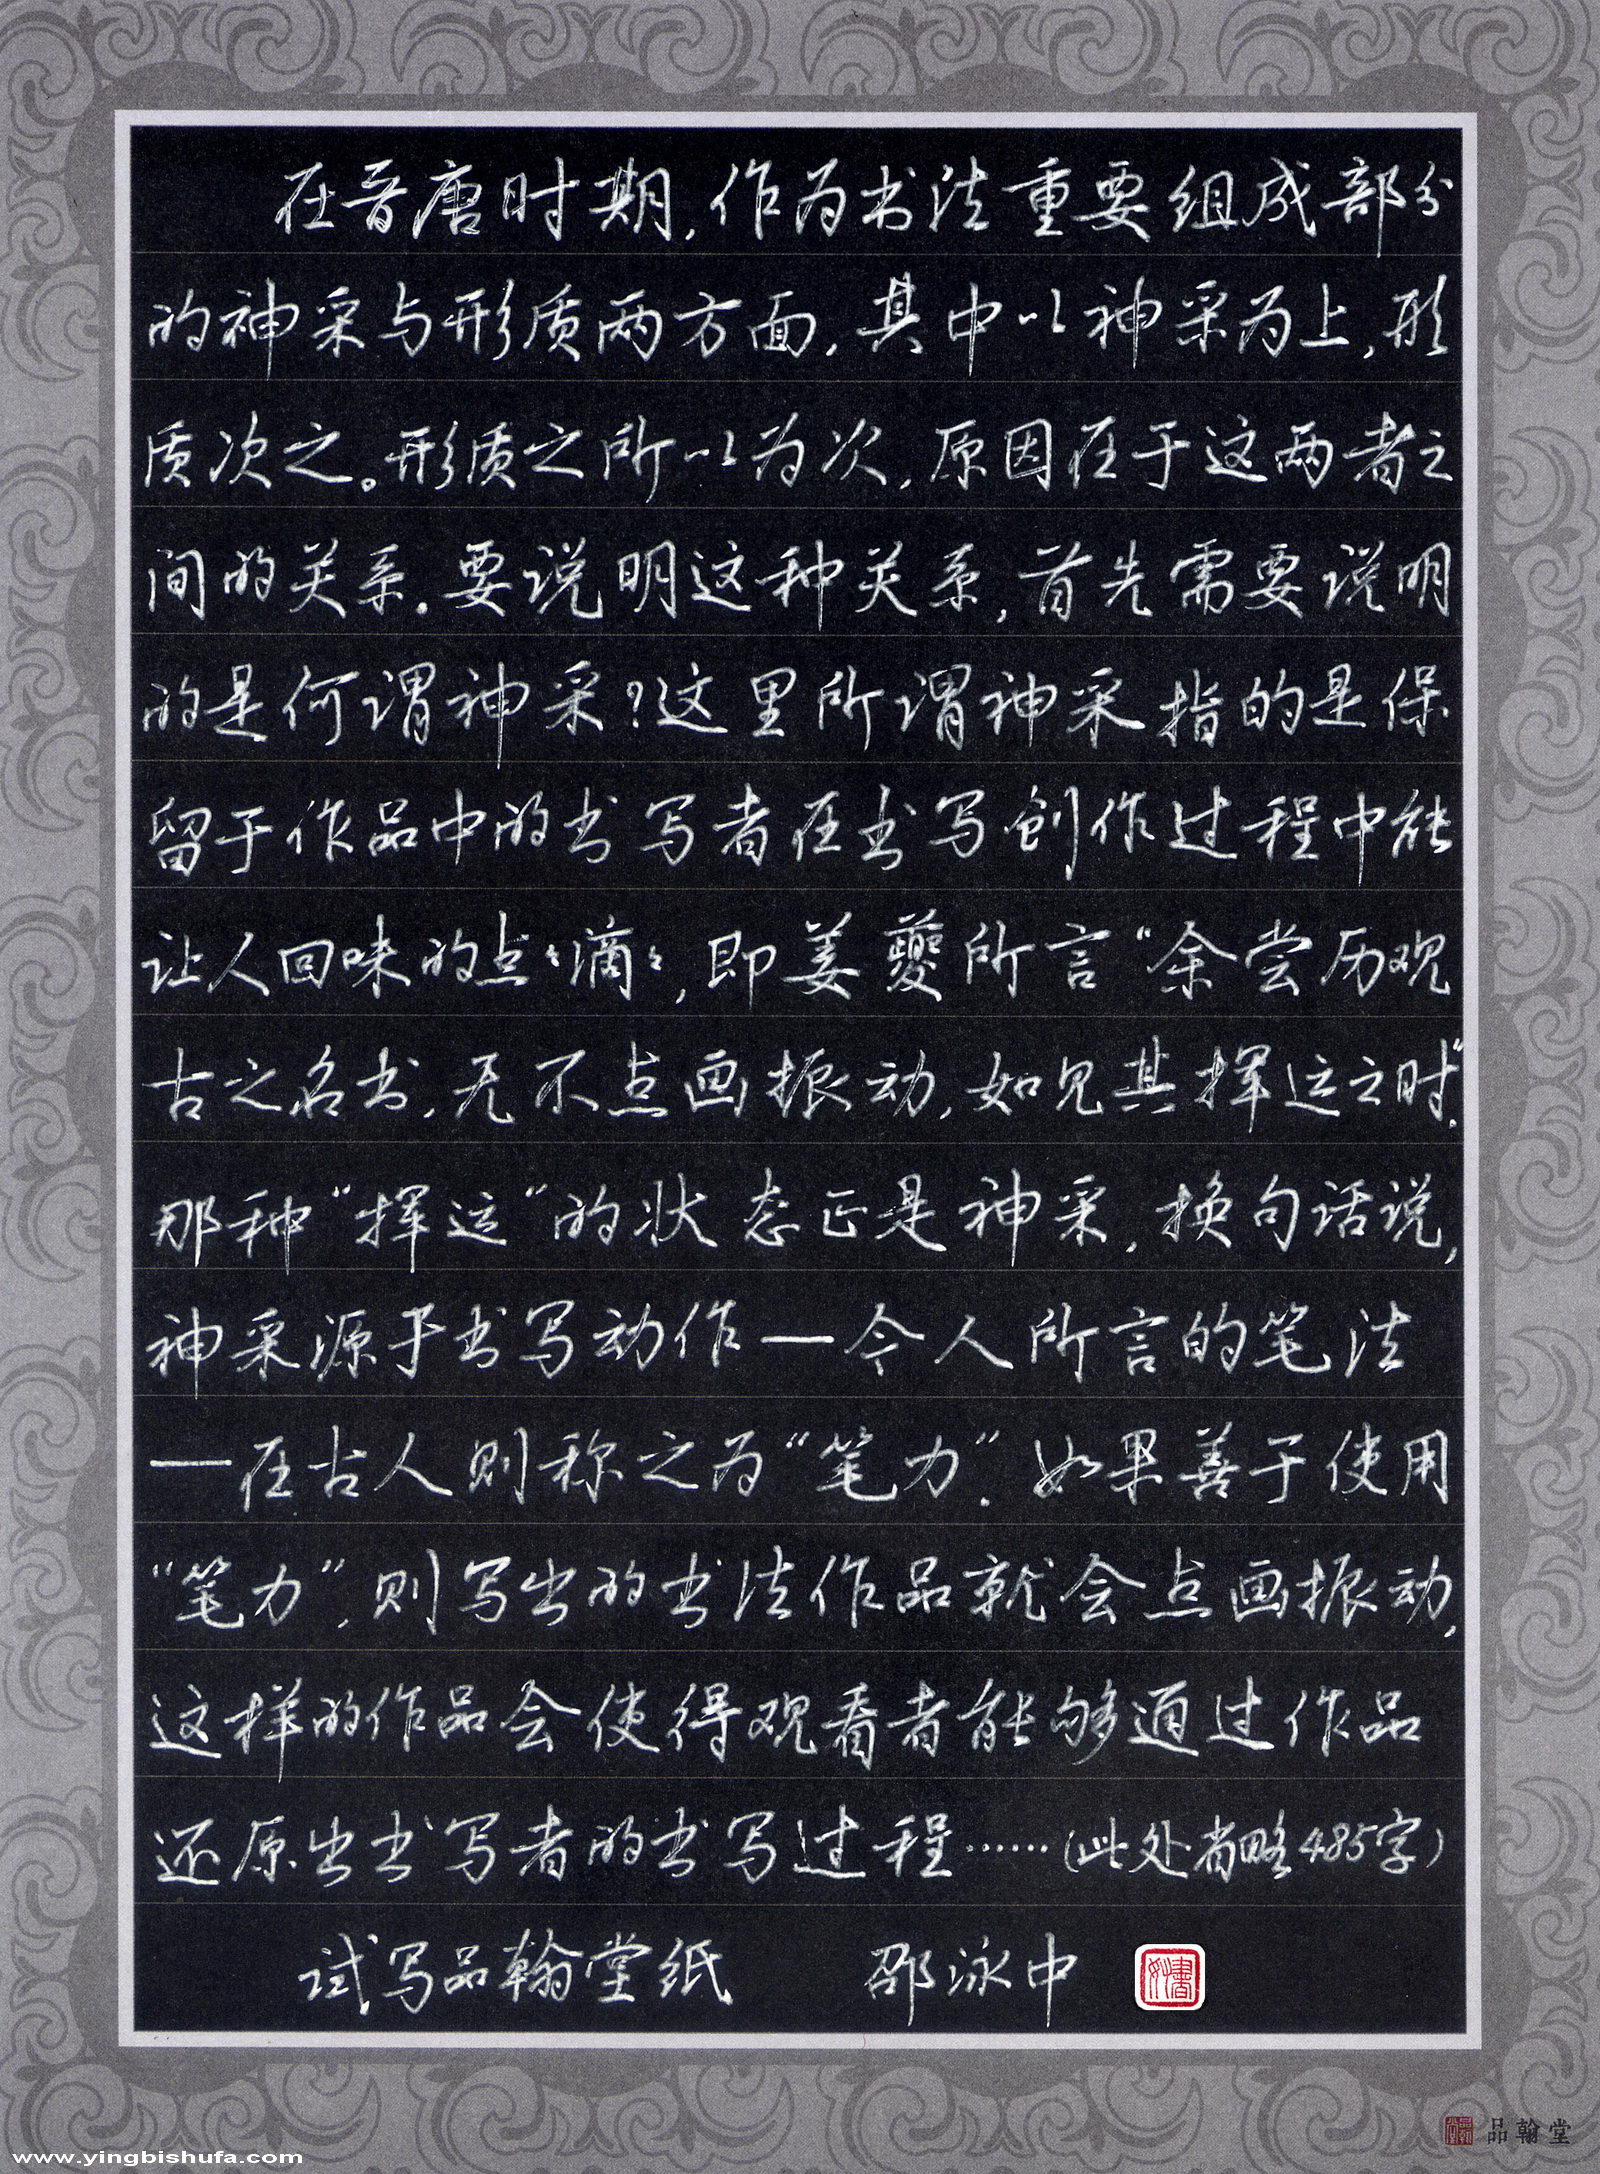 在晋唐时期，作为书法重要组成部分
的神采与形质两方面，其中以神采为上，形
质次之。形质之所以为次，原因在于这两者之
间的关系。要说明这种关系，首先需要说明
的是何谓神采？这里所谓神采指的是保
留于作品中的书写者在书写创作过程中能
让人回味的点々滴々，即姜夔所言“余尝历观
古之名书，无不点画振动，如见其挥运之时”。
那种“挥运”的状态正是神采，换句话说，
神采源于书写动作—今人所言的笔法
—在古人则称之为“笔力”。如果善于使用
“笔力”，则写出的书法作品就会点画振动，
这样的作品会使得观看者能够通过作品
还原出书写者的书写过程……（此处省略485字）
试写品翰堂纸 邵泳中
品翰堂
www.yingbishufa.com